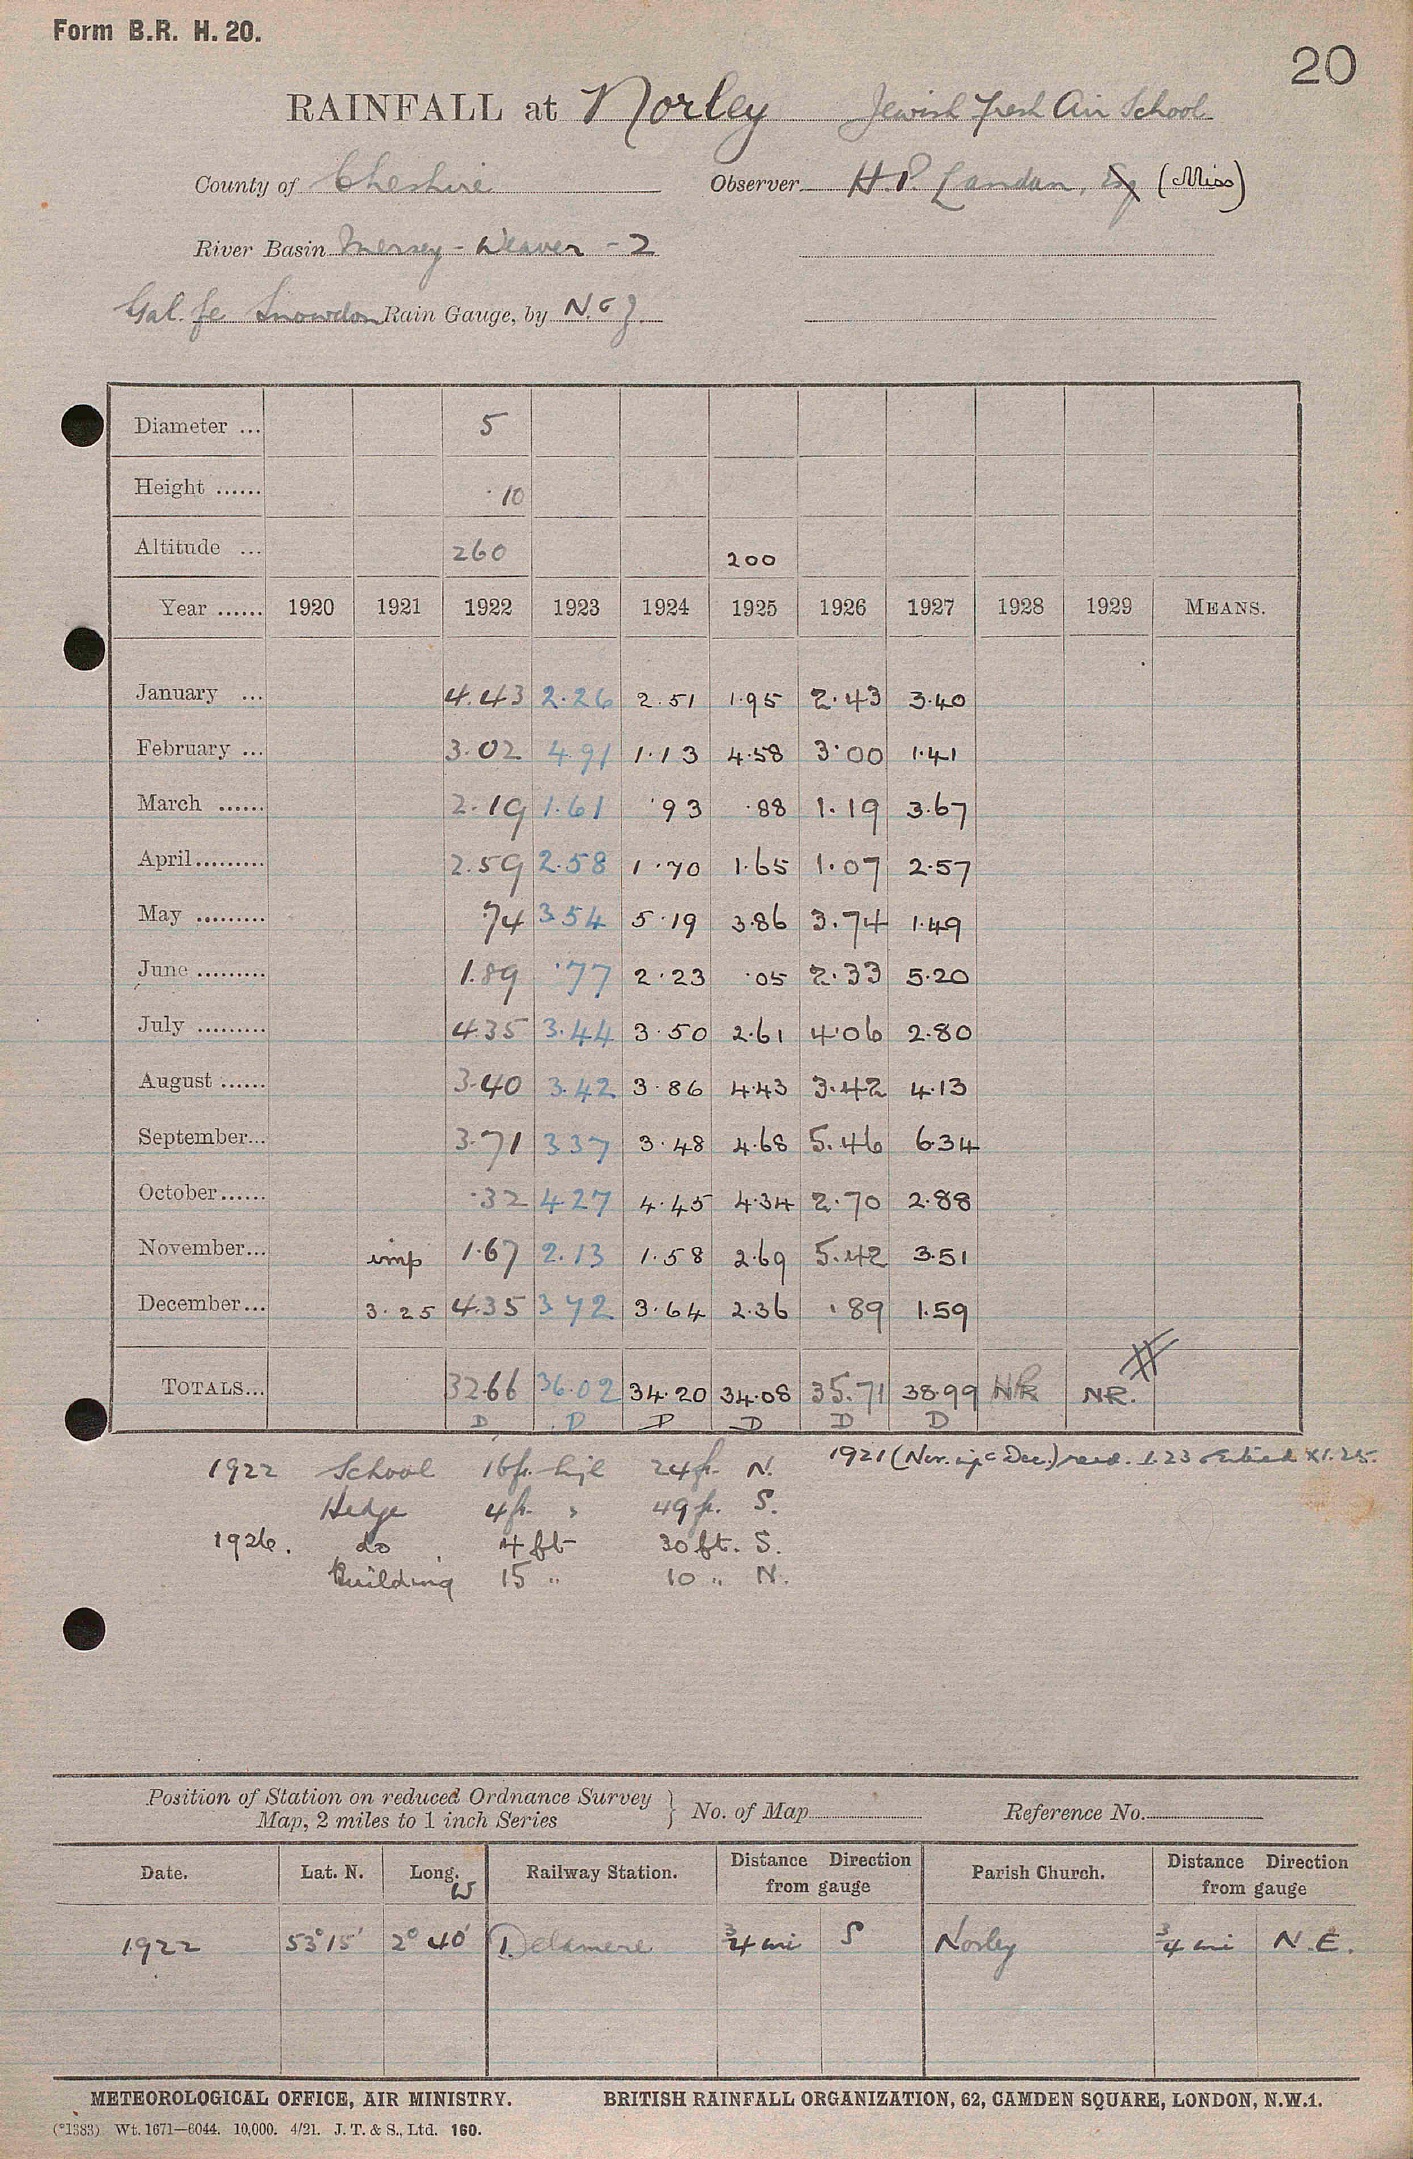 Form B.R. H. 20.
20
RAINFALL at Norley Jewish Fresh Air School
County of Cheshire Observer H. P. Landau, Esq (Miss)
River Basin Mersey - Weaver - 2
Gal. fe Snowdon Rain Gauge, by N. & Z.
Diameter ... 5
Height ...... ·10
Altitude ... 260 200
Year ...... 1920 1921 1922 1923 1924 1925 1926 1927 1928 1929 MEANS.
January ... 4.43 2.26 2.51 1.95 2.43 3.40
February ... 3.02 4.91 1.13 4.58 3.00 1.41
March ...... 2.19 1.61 .93 .88 1.19 3.67
April......... 2.59 2.58 1.70 1.65 1.07 2.57
May ......... .74 3.54 5.19 3.86 3.74 1.49
June ......... 1.89 .77 2.23 .05 2.33 5.20
July ......... 4.35 3.44 3.50 2.61 4.06 2.80
August ...... 3.40 3.42 3.86 4.43 3.42 4.13
September... 3.71 3.37 3.48 4.68 5.46 6.34
October...... .32 4.27 4.45 4.34 2.70 2.88
November... imp 1.67 2.13 1.58 2.69 5.42 3.51
December... 3.25 4.35 3.72 3.64 2.36 .89 1.59
TOTALS... 32.66 36.02 34.20 34.08 35.71 38.99 NR NR.
D D D D D D
1922 School 16ft. high 24ft. N. 1921 (Nov. Dec.) 1.25.
Hedge 4ft. " 49ft. S.
1926. do 4 ft 30 ft. S.
Building 15 " 10 " N.
Position of Station on reduced Ordnance Survey
Map, 2 miles to 1 inch Series } No. of Map Reference No.
Date. Lat. N. Long. W Railway Station. Distance Direction from gauge Parish Church. Distance Direction from gauge
1922 53° 15' 2° 40' Delamere ¾ mi S Norley ¾ mi N.E.
METEOROLOGICAL OFFICE, AIR MINISTRY. BRITISH RAINFALL ORGANIZATION, 62, CAMDEN SQUARE, LONDON, N.W.1.
(*1383) Wt. 1671—6044. 10,000. 4/21. J. T. & S., Ltd. 160.